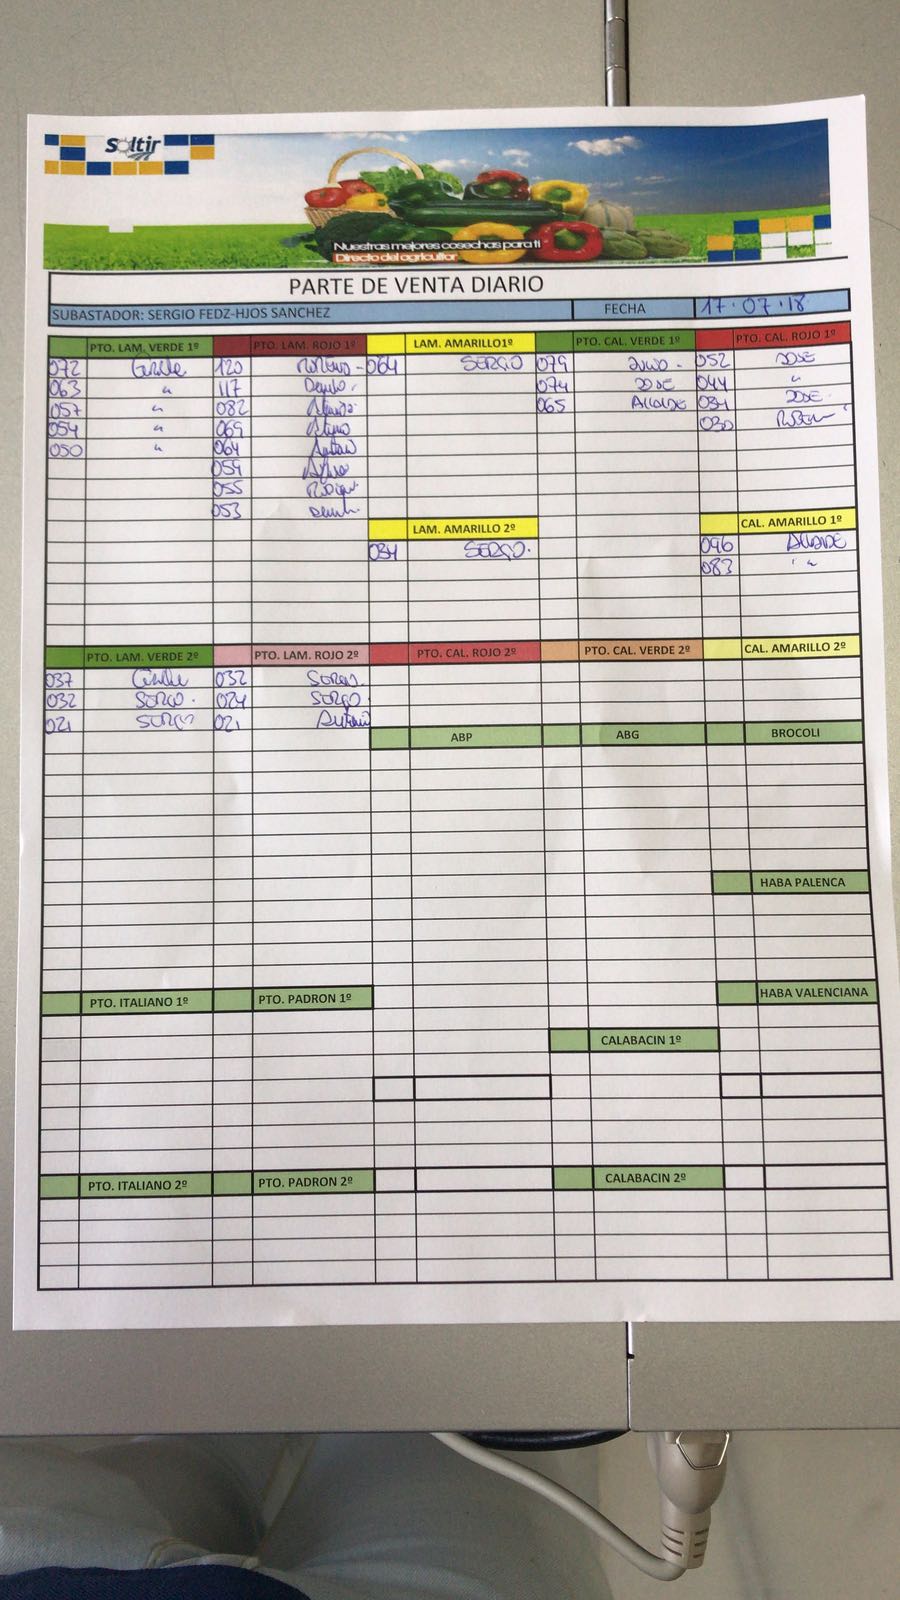 Soltir
Nuestras mejores cosechas para ti
Directo del agricultor
PARTE DE VENTA DIARIO
SUBASTADOR: SERGIO FEDZ-HJOS SANCHEZ FECHA 17·07·18
PTO. LAM. VERDE 1º PTO. LAM. ROJO 1º LAM. AMARILLO1º PTO. CAL. VERDE 1º PTO. CAL. ROJO 1º
072 120 064 SERGIO 079 052 JOSE
063 " 117 074 JOSE 044 "
057 " 082 065 034 JOSE
054 " 069 030 RUBEN
050 " 064
054
055
053
LAM. AMARILLO 2º CAL. AMARILLO 1º
034 SERGIO 096
083 "
PTO. LAM. VERDE 2º PTO. LAM. ROJO 2º PTO. CAL. ROJO 2º PTO. CAL. VERDE 2º CAL. AMARILLO 2º
037 032 SERGIO
032 SERGIO 024 SERGIO
021 SERGIO 021 Antonio
ABP ABG BROCOLI
HABA PALENCA
HABA VALENCIANA
PTO. ITALIANO 1º PTO. PADRON 1º
CALABACIN 1º
PTO. ITALIANO 2º PTO. PADRON 2º CALABACIN 2º